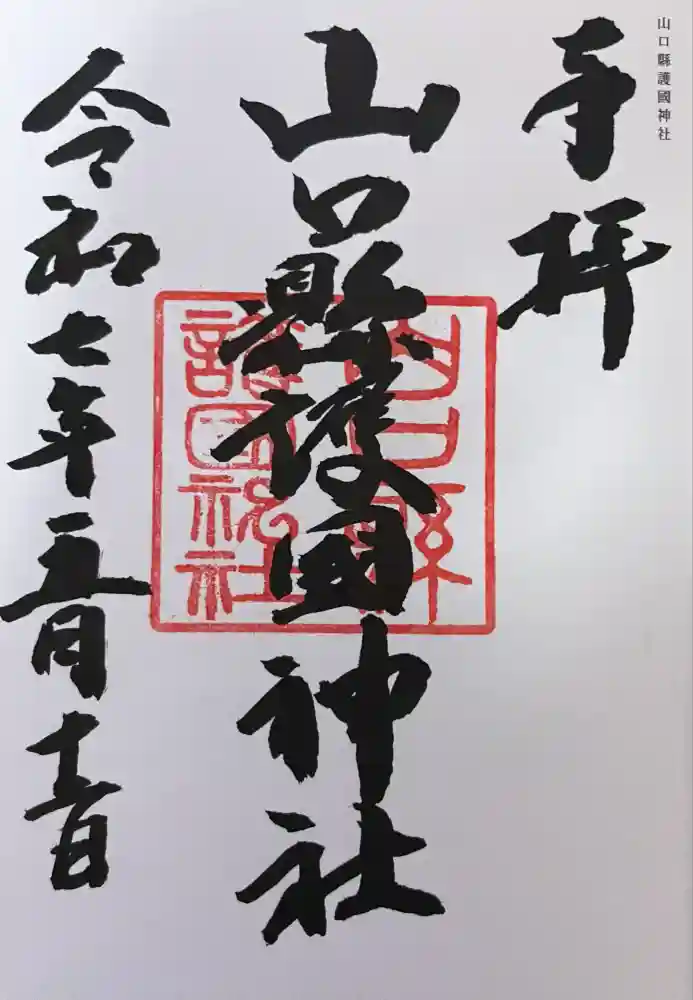 山口縣護國神社
奉拝
山口縣護國神社
令和七年五月十日
山口縣
護國神社